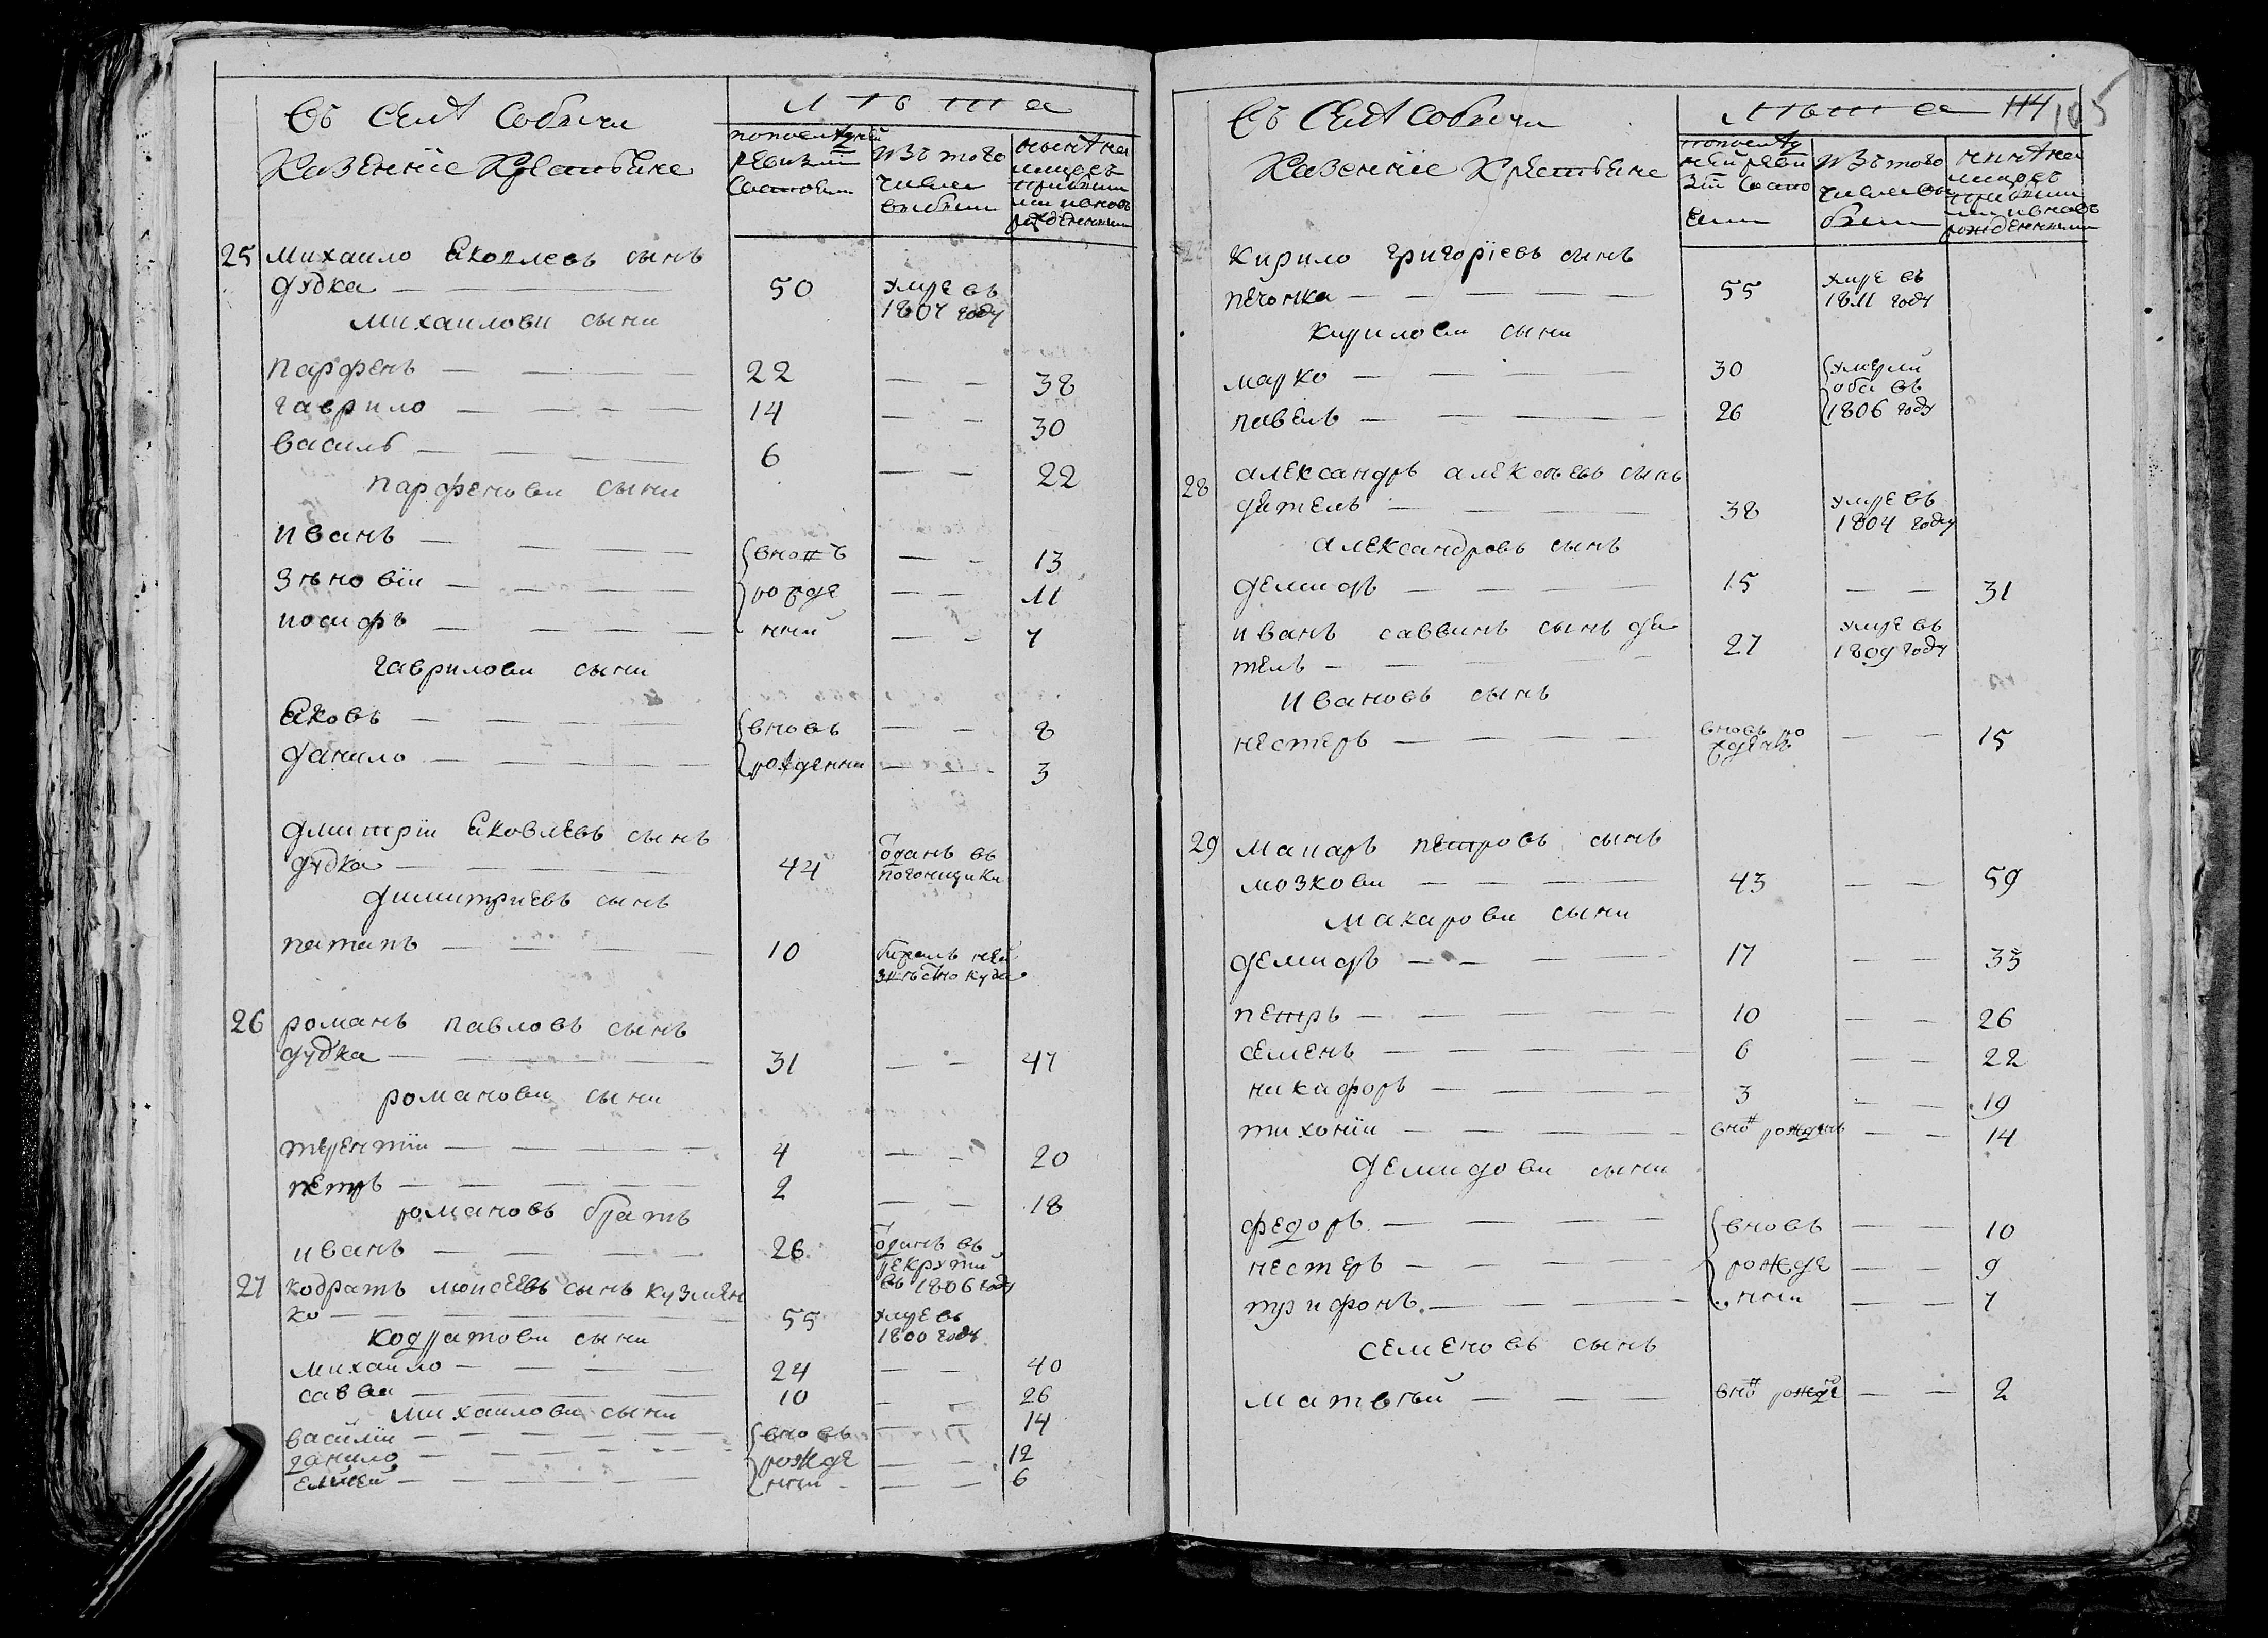 Въ Селѣ Собичи
Казенніе Крестьяне
Лѣта
по последней
ревизіи
состояли
изъ того
числа
выбыли
нынѣ на
лицо съ
прибыли
ми и вновь
рожденними
25 михаило Яковлевъ сынъ
дудка — 50 умре въ
1807 году
михаилови сыни
парфенъ — 22 — 38
гаврило — 14 — 30
василь — 6 — 22
парфенови сыни
иванъ — вновъ — 13
зѣновіи — рожде — 11
иосифъ — нній — 7
гаврилови сыни
Яковъ — вновь — 8
данило — рожденни — 3
дмитріи Яковлевъ сынъ
дудка — 44 одан въ
погонщики
димитриевъ сынъ
патапъ — 10 неи
звѣстно куда
26 романъ павловъ сынъ
дудка — 31 — 47
романови сыни
терентіи — 4 — 20
петръ — 2 — 18
романовъ братъ
иванъ — 26 оданъ въ
рекрути
въ 1806 году
27 кодратъ моисеевъ сынъ кузмен
ко — 55 умре въ
1800 году
кодратови сыни
михаило — 24 — 40
савва — 10 — 26
михаилови сыни
василіи — вновь — 14
данило — рожде — 12
елисей — нни — 6
114 105
Въ Селѣ Собичи
Казенніе Крестьяне
Лѣта
по последу
ней реви
зіи состо
яли
изъ того
числа вы
были
нынѣ на
лицо съ
прибыли
ми и вновь
рожденними
кирило григоріевъ сынъ
печонка — 55 умре въ
1811 году
кирилови сыни
марко — 30 умерли
оба въ
павелъ — 26 1806 году
28 александръ алексѣевъ сынъ
дятель — 38 умре въ
1804 году
александровъ сынъ
демидъ — 15 — 31
иванъ саввинъ сынъ дя
тель — 27 умре въ
1809 году
ивановъ сынъ
нестеръ — вновь ро
жденъ — 15
29 макаръ петровъ сынъ
мозкови — 43 — 59
макарови сыни
демидъ — 17 — 33
петръ — 10 — 26
семенъ — 6 — 22
никифоръ — 3 — 19
тихоніи — вно рожденъ — 14
демидови сыни
федоръ — вновь — 10
нестеръ — рожде — 9
трифонъ — нни — 7
семеновъ сынъ
матвѣй — вно рожде — 2